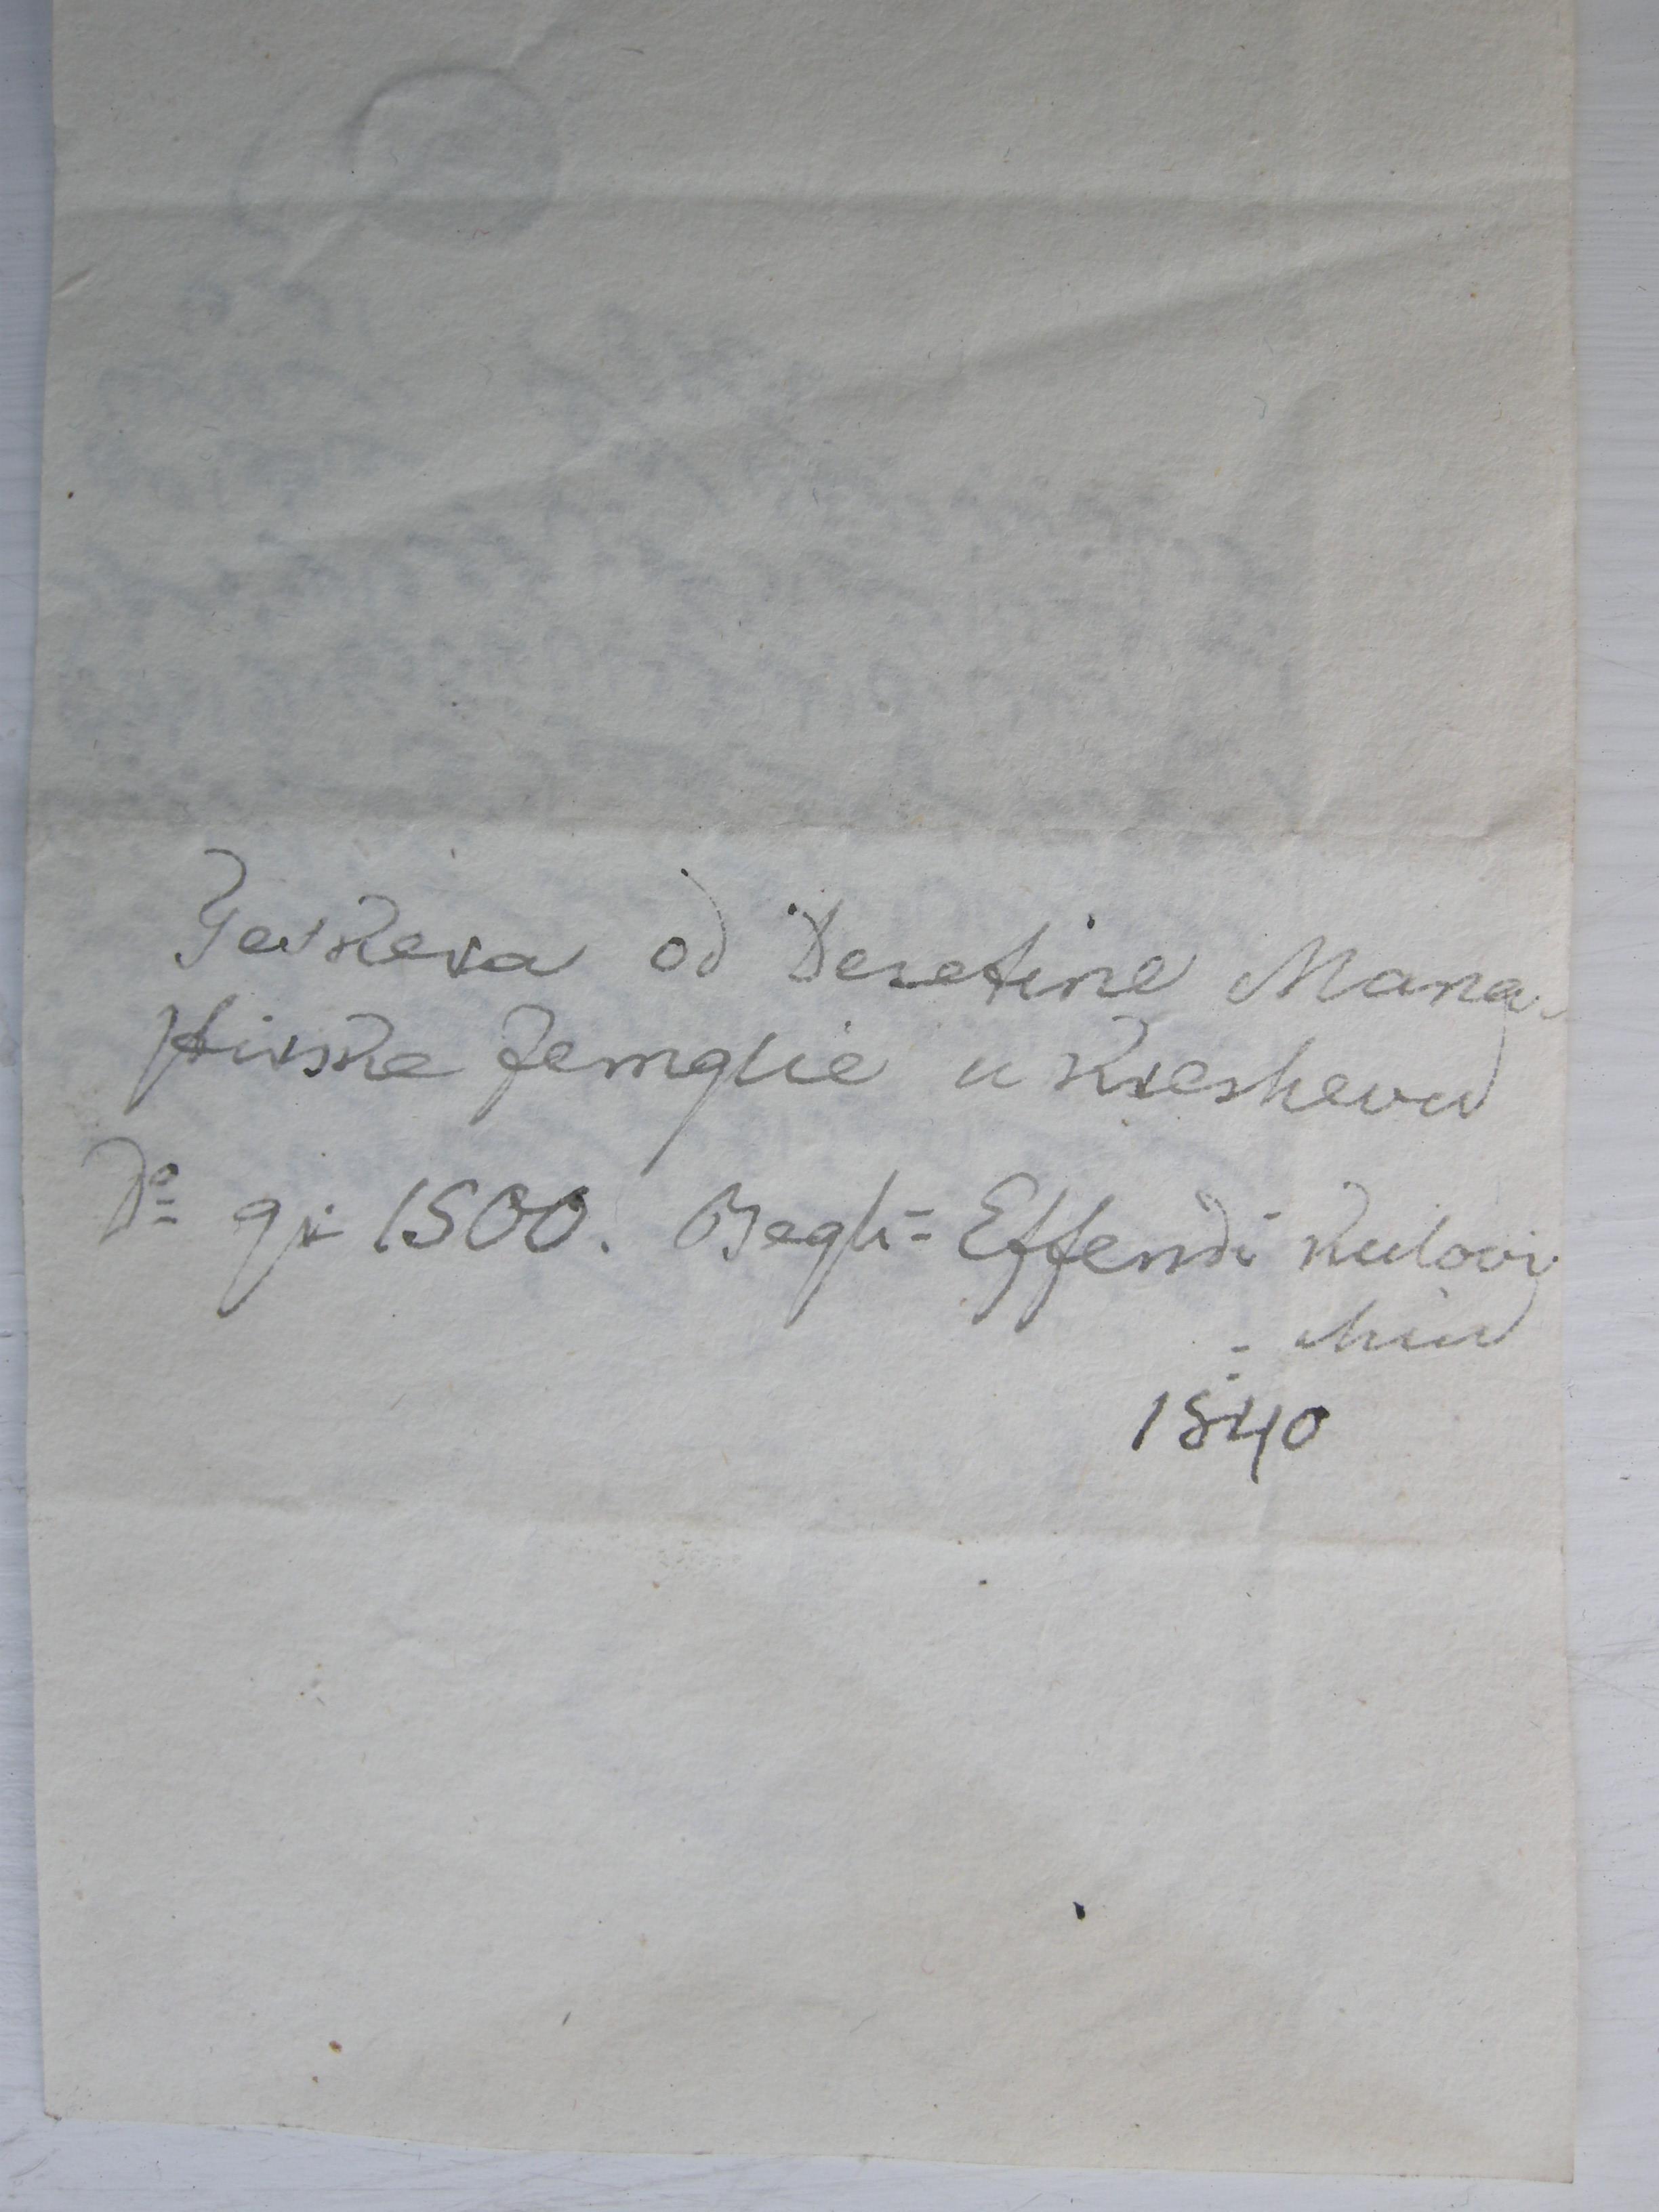 Teskera od Desetine Mana-
stirske zemglie u Kreshevu
Do gr 1500. Begli= Effendi Kulovi
- chiu
1840